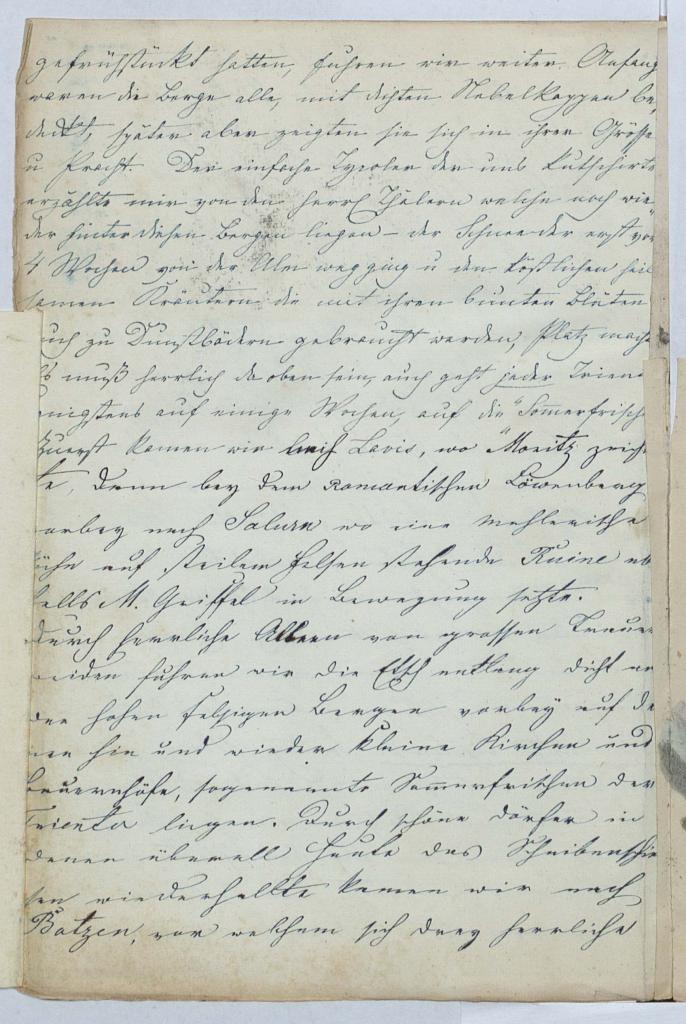 gefrühstückt hatten, fuhren wir weiter. Anfang
waren die Berge alle, mit dichten Nebelkappen be,
deckt, später aber zeigten sie sich in ihrer Grösse
u Pracht. Der einfache Tyroler der uns kutschirte
erzählte mir von den herrl Thälern welche noch wie
der hinter diesen Bergen liegen – der Schnee der erst vor
4 Wochen von der Alm wegging u den köstlichen heil
samen Kräutern die mit ihren bunten Blüten
auch zu Dunstbädern gebraucht werden, Platz mach
Es muß herrlich da oben sein, auch geht jeder Trient
enigstens auf einige Wochen, auf die "Somerfrisch
Zuerst kamen wir nach Lavis, wo Moritz zeich
te, dann bey dem romantischen Löwenberg
orbey nach Salurn wo eine mahlerische
kühn auf steilem Felsen stehende Ruine
falls M. Griffel in Bewegung setzte.
Durch herrliche Alleen von grossen Trauer
weiden fuhren wir die Etsch entlang dicht an
den hohen felsigen Bergen vorbey auf de
nen hin und wieder kleine Kirchen und
Bauernhöfe, sogenannte Sommerfrischen der
Trienter liegen. Durch schöne Dörfer in
denen überall heute das Scheibenschie
sen wiederhallte kamen wir nach
Botzen, vor welchem sich drey herrliche